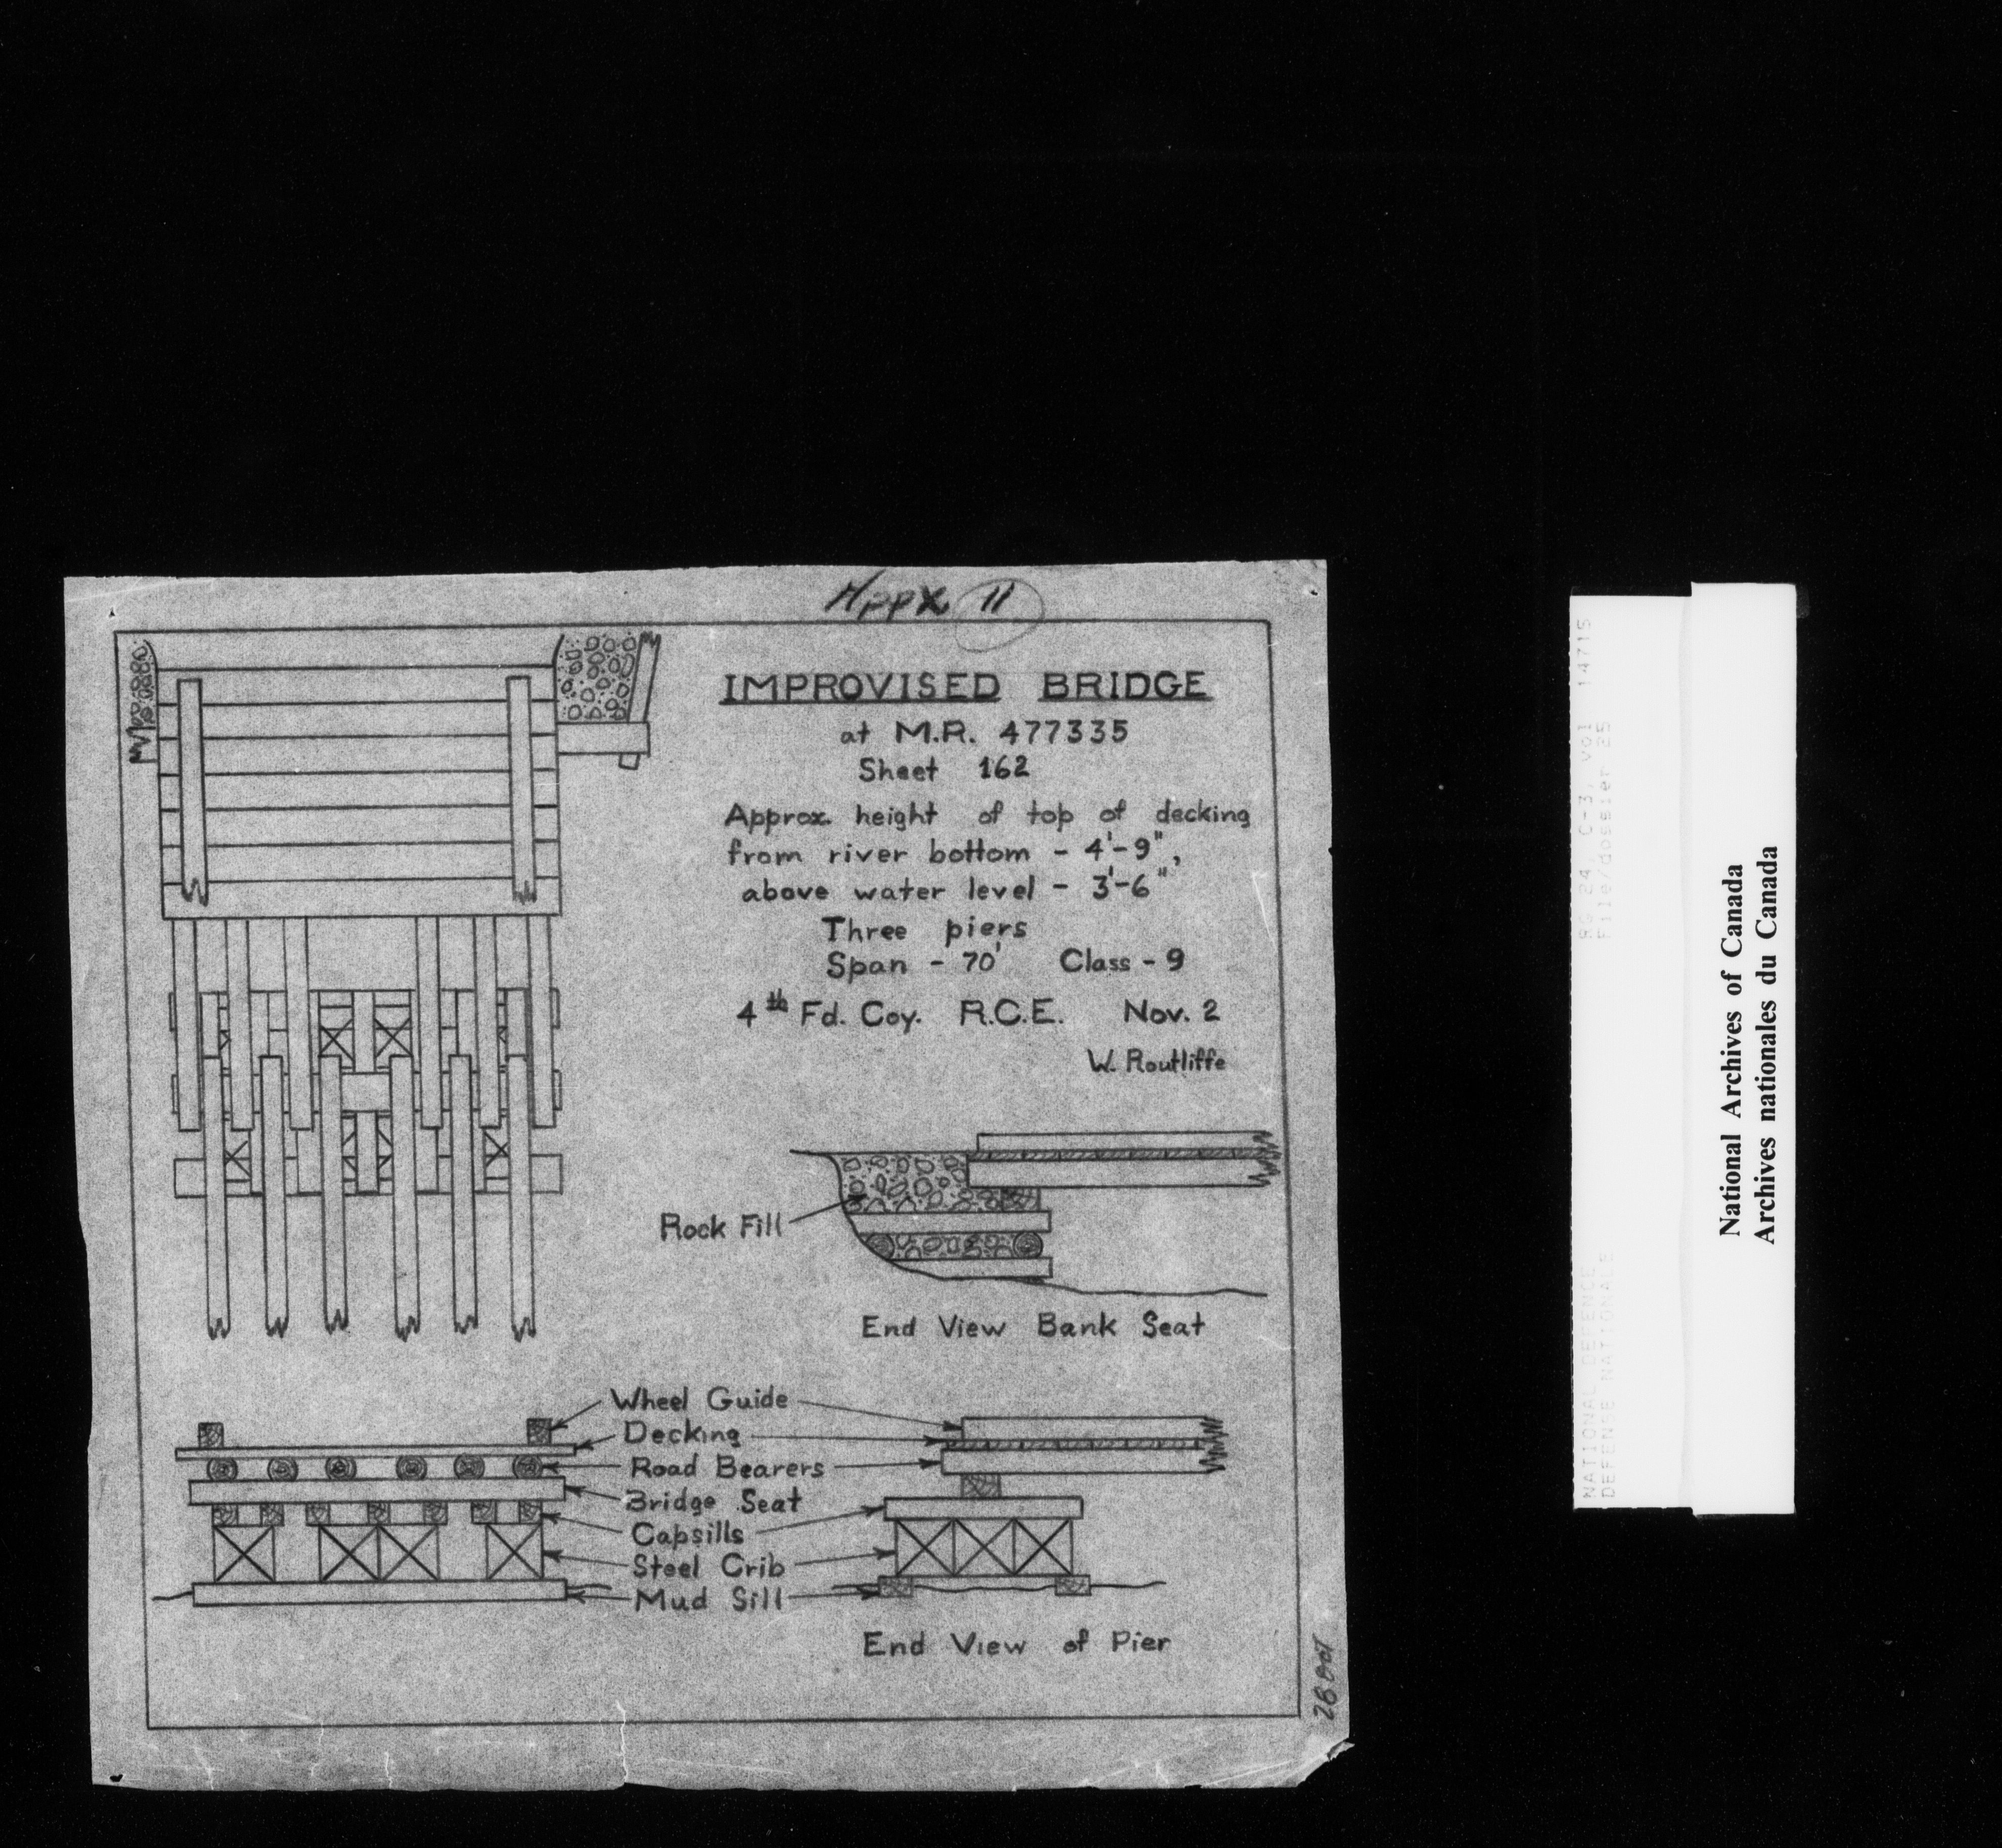 Appx 11
IMPROVISED BRIDGE
at M.R. 477335
Sheet 162
Approx. height of top of decking
from river bottom - 4'-9",
above water level - 3'-6"
Three piers
Span - 70' Class - 9
4th Fd. Coy. R.C.E. Nov. 2
W. Routliffe
Rock Fill
End View Bank Seat
Wheel Guide
Decking
Road Bearers
Bridge Seat
Capsills
Steel Crib
Mud Sill
End View of Pier
NATIONAL DEFENCE RG 24, C-3, vol 14715
DEFENSE NATIONALE File/dossier 25
National Archives of Canada
Archives nationales du Canada